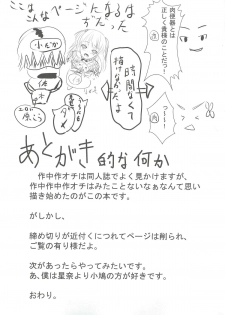 ここは
こんなページになるは
ずだった
時間なくて
描けなかった
肉便器とは
正しく貴様の
ことだっ！
小ばと
あとがき的な何か
作中作オチは同人誌でよく見かけますが、
作中作中作オチはみたことないなぁなんて思い
描き始めたがこの本です。
がしかし、
締め切りが近付くにつてページは削られ、
ご覧の有り様だよ。
次があったらやってみたいです。
あ、僕は星奈より小鳩の方が好きです。
おわり。